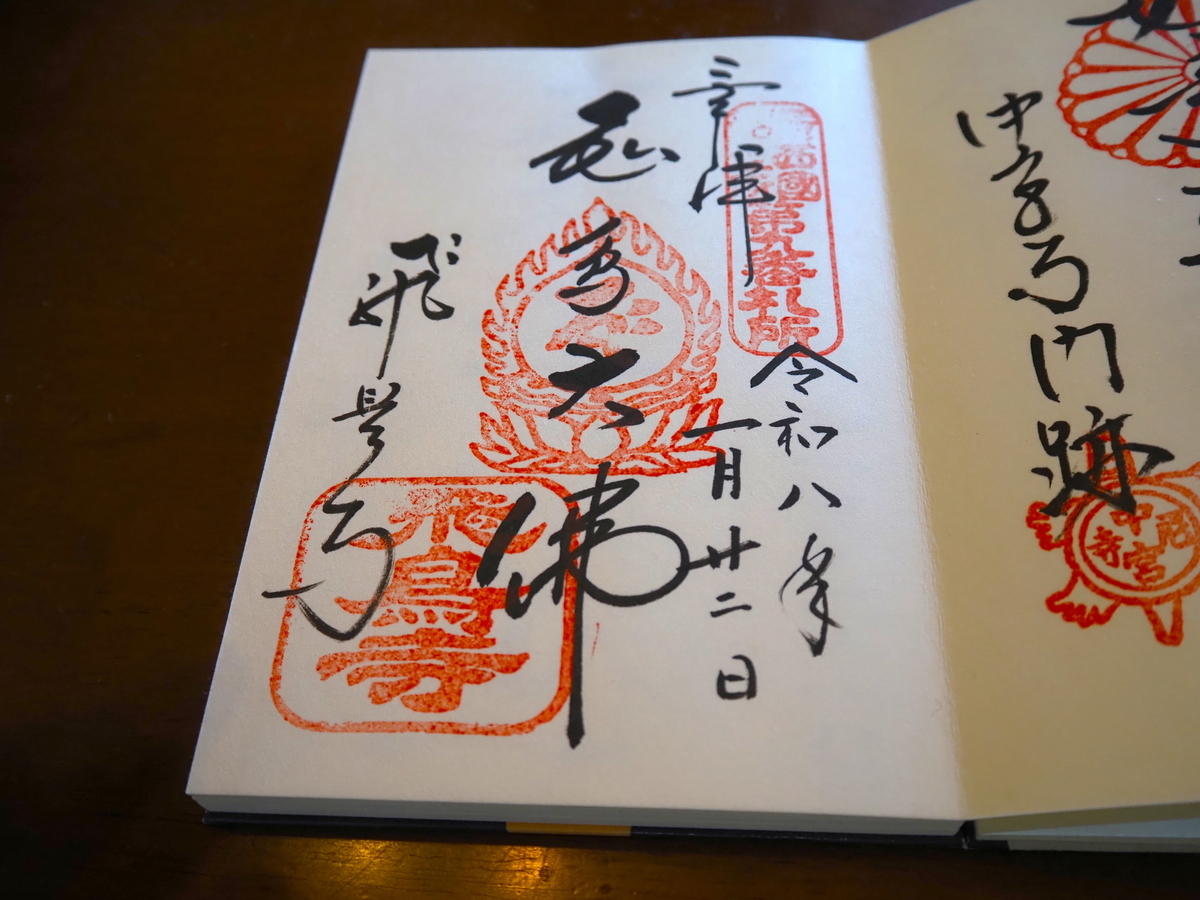 中宮寺門跡
奉拝
西國第九番札所
令和八年
一月廿二日
飛鳥大佛
飛鳥寺
飛鳥寺